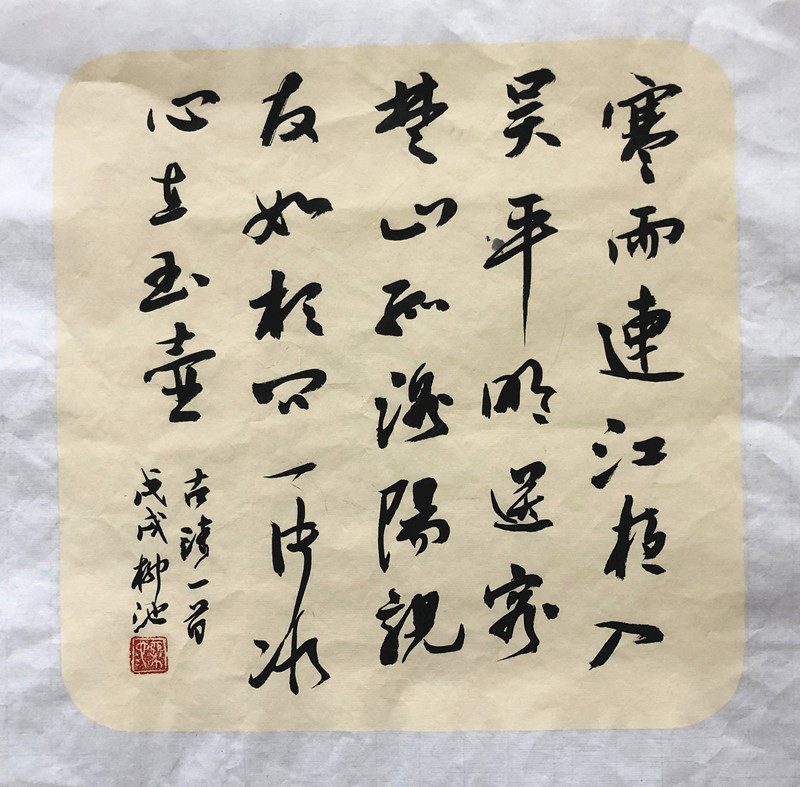 寒雨連江夜入
吳平明送客
楚山孤洛陽親
友如相問一片冰
心在玉壺
古詩一首
戊戌柳池